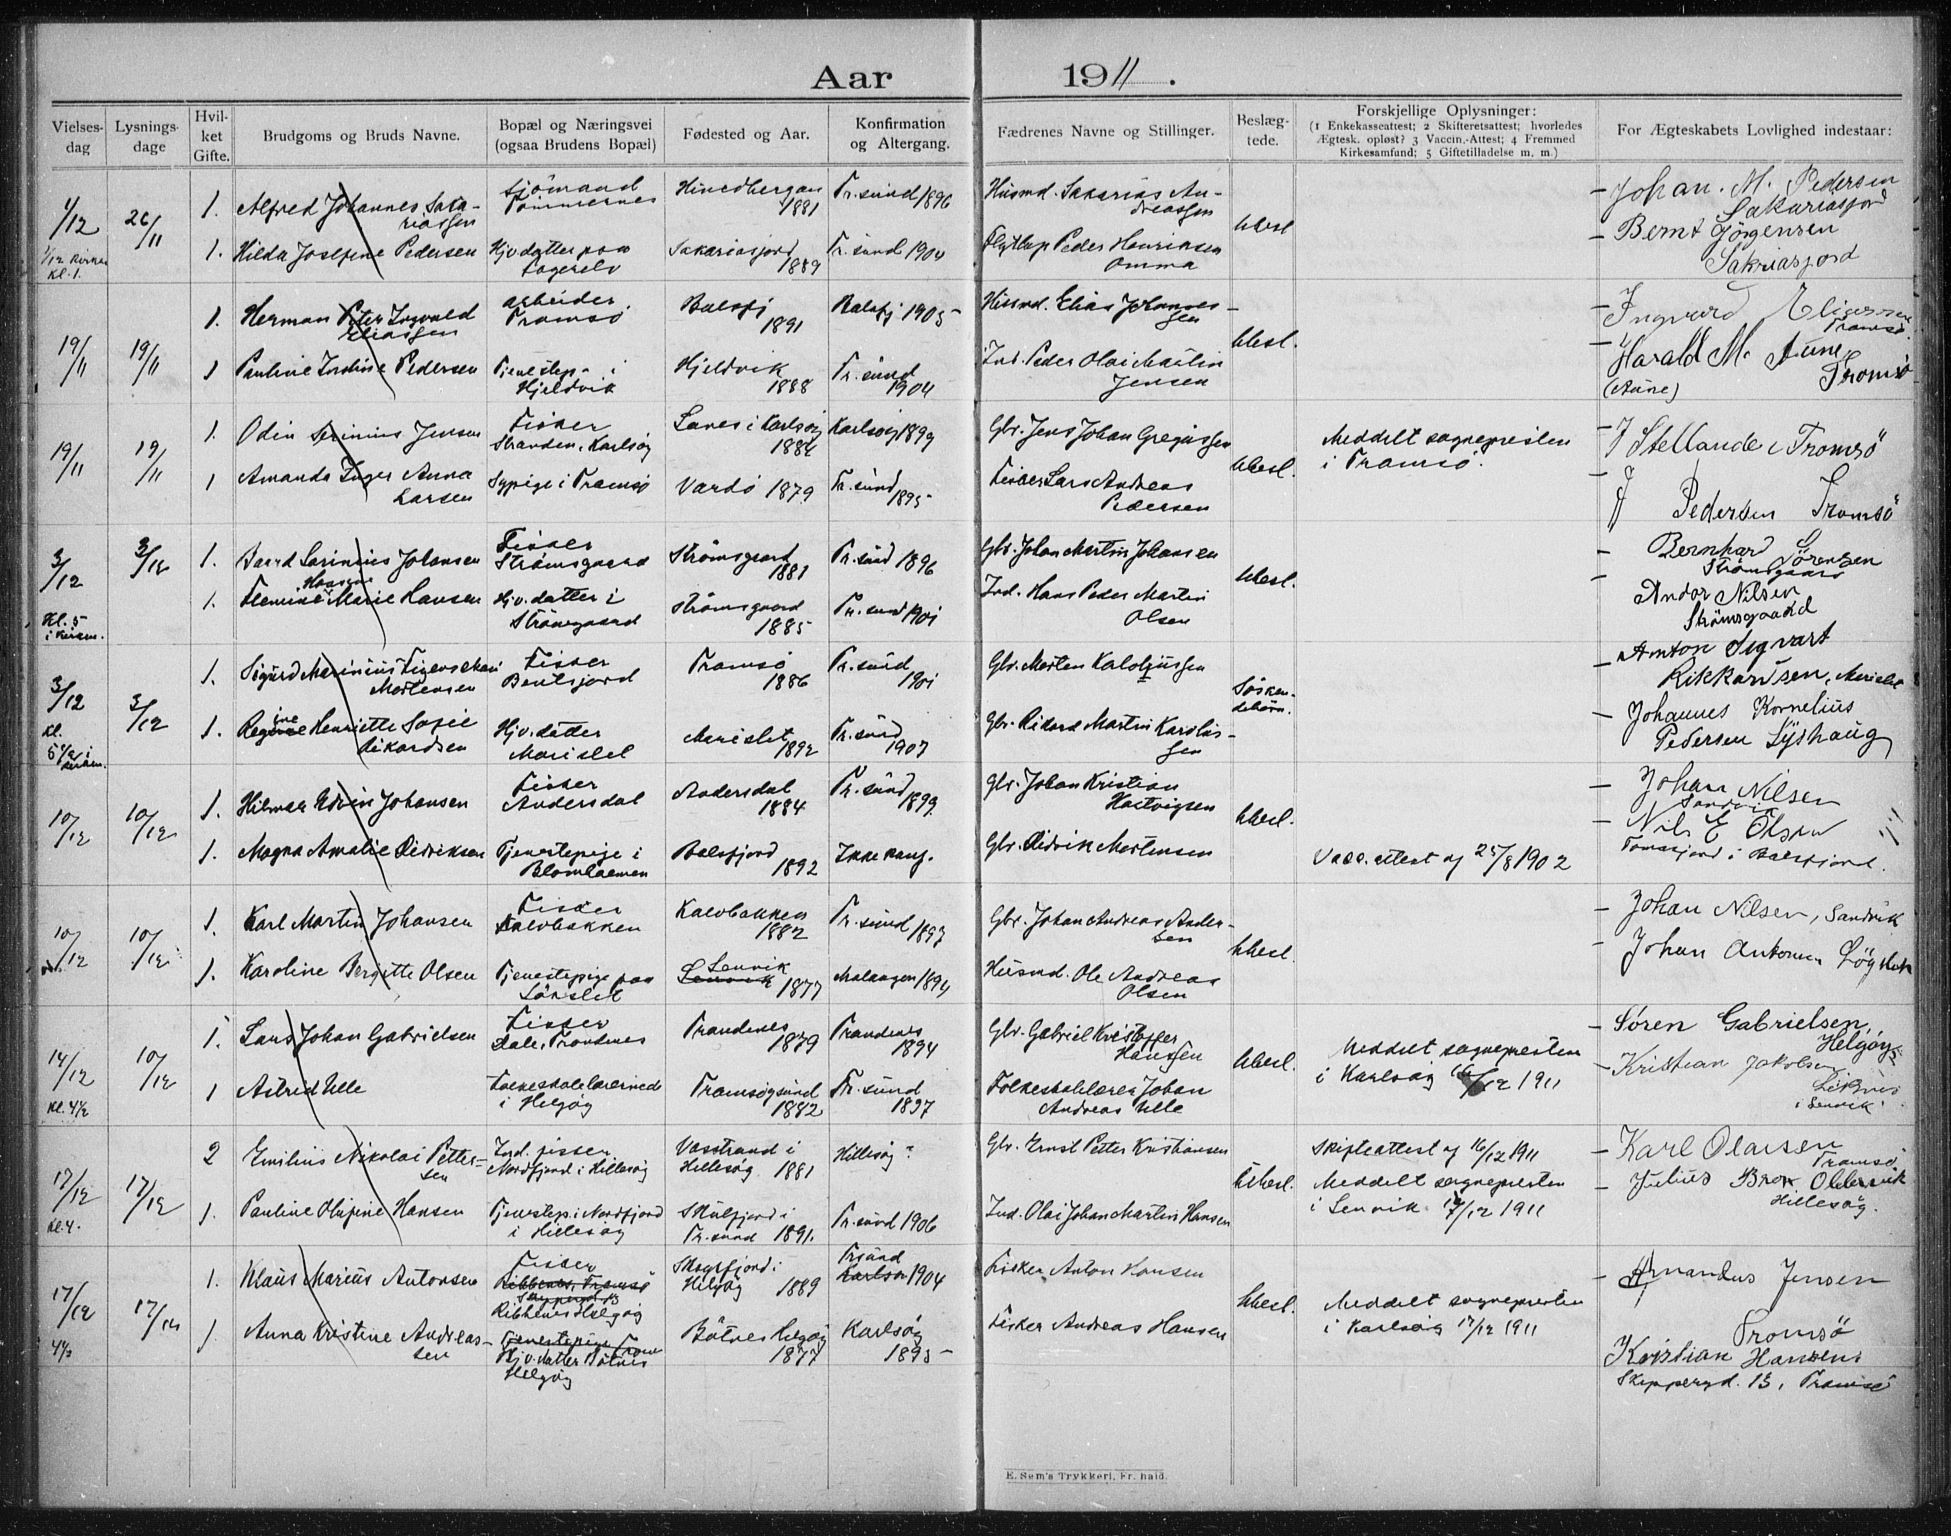 Aar 1911.
Vielses-dag
Lysnings-dage
Hvil-ket Gifte.
Brudgoms og Bruds Navne.
Bopæl og Næringsvei (ogsaa Brudens Bopæl)
Fødested og Aar.
Konfirmation og Altergang.
Fædrenes Navne og Stillinger.
Beslæg-tede.
Forskjellige Oplysninger:
(1 Enkekasseattest; 2 Skifteretsattest; hvorledes
Ægtesk. opløst? 3 Vaccin.-Attest; 4 Fremmed
Kirkesamfund; 5 Giftetilladelse m. m.)
For Ægteskabets Lovlighed indestaar:
1/12 26/11 1. Alfred Johannes Saka-riassen Sjömand 1881 Tr.sund 1896 Husmd. Sakarias An-dreassen Ubesl. Johan. M. Pedersen Sakariasjord
Kl. 1. 1. Hilda Josefine Pedersen Hjv. datter paa Lagerelv Sakariasjord 1889 Tr.sund 1904 Peder Henriksen Omma Bernt Jörgensen Sakriasjord
19/11 19/11 1. Herman Peter Ingvald Eliassen Arbeider Tromsö Balsfj 1891 Balsfj 1905 Husmd. Elias Johannes-sen Ubesl. Ingvard Eliassen Tromsö
1 Pauline Pedersen Tjenestep. i Hjeldvik Hjeldvik 1888 Tr.sund 1904 Ind. Peder Olai Martin Jensen Harald M. Aune Tromsö (Aune)
19/11 19/11 1. Odin Jensen Fisker Stranden, Karlsöy Lanes i Karlsöy Karlsöy 1899 Gbr. Jens Johan Ubesl. Meddelt sognepresten i Tromsö. J Stellande i Tromsö
1 Amanda Inger Anna Larsen Sypige i Tromsö Vardö 1879 Tr.sund 1895 Fisker Lars Andreas Pedersen J Pedersen Tromsö
3/12 3/12 1. Johansen Fisker Strömsgaard Strömsgaard 1881 Tr.sund 1896 Gbr. Johan Martin Johansen Ubesl. Bernhard Sörensen Strömsgaard
Kl. 5 1. Marie Hansen Hjv. datter i Strömsgaard Strömsgaard 1885 Tr.sund 1901 Ind. Hans Peder Martin Olsen Andor Nilsen Strömsgaard
3/12 3/12 1. Sigurd Marinius Mortensen Fisker Bentsjord Tromsö 1886 Tr.sund 1901 Gbr. Morten Sösken-debörn. Anton Sigvart Rikkardsen,
Kl. 5 1/2 1. Regine Henriette Sofie Rikardsen Hjv. datter Marislet Marislet 1892 Tr.sund 1907 Gbr. Rikard Martin Karolius-sen Johannes Kornelius Pedersen Lyshaug
10/12 10/12 1. Hilmar Edvin Johansen Fisker Andersdal Andersdal 1884 Tr.sund 1899 Gbr. Johan Kristian Hartvigsen Ubesl. Johan Nilsen Sandvik
1. Magna Amalie Didriksen Tjenestepige i Balsfjord 1892 Ikke konf. Gbr. Didrik Mortensen Vacc. attest af 25/8 1902 Nils E Olsen Tomasjord i Balsfjord.
10/12 10/12 1. Karl Martin Johansen Fisker Kalvbakken Kalvbakken 1882 Tr.sund 1897 Gbr. Johan Andreas Ander-sen Ubesl. Johan Nilsen, Sandvik
1. Karoline Bergitte Olsen Tjenestepige paa Lenvik 1877 Malangen 1894 Husmd. Ole Andreas Olsen Johan Antonsen
14/12 10/12 1. Lars Johan Gabrielsen Fisker Dale, Trondenes Trondenes 1879 Trondenes 1894 Gbr. Gabriel Kristoffer Hansen Ubesl. Meddelt sognepresten i Karlsöy 1911 Sören Gabrielsen, Helgöy
Kl. 4 1/2 1 Astrid Ulle Folkeskolelærerinde i Helgöy Tromsöysund 1882 Tr.sund 1897 Folkeskolelærer Johan Andreas Ulle Kristian Jakobsen i Lenvik.
17/12 17/12 2 Emilius Nikolai Petter-sen Ind. fisker Nordfjord i Hillesöy Vasstrand i Hillesöy 1881 Hillesöy ? Gbr. Ernst Petter Kristiansen Ubesl. Skifteattest af 16/12 1911 Karl Olaisen Tromsö
Kl. 4. 1. Pauline Olufine Hansen Tjenestep. i Nordfjord i Hillesöy Skulfjord i Tr.sund 1891. Tr.sund 1906 Ind. Olai Johan Martin Hansen Meddelt sognepresten i Lenvik 17/12 1911 Julius Brox Hillesöy.
17/12 17/12 1. Klaus Marius Antonsen Fisker Ribbenes Helgöy Skogsfjord i Helgöy 1889 Tr.sund 1904 Fisker Anton Hansen Ubesl. Meddelt sognepresten i Karlsöy 17/12 1911 Amandus Jensen Tromsö
4 1/2 1 Anna Kristine Andreas-sen Hjv. datter Bötnes Helgöy Bötnes Helgöy 1877 Karlsöy 1895 Fisker Andreas Hansen Kristian Hansen. Skippergd. 13, Tromsö
E. Sem's Trykkeri, Fr. hald.